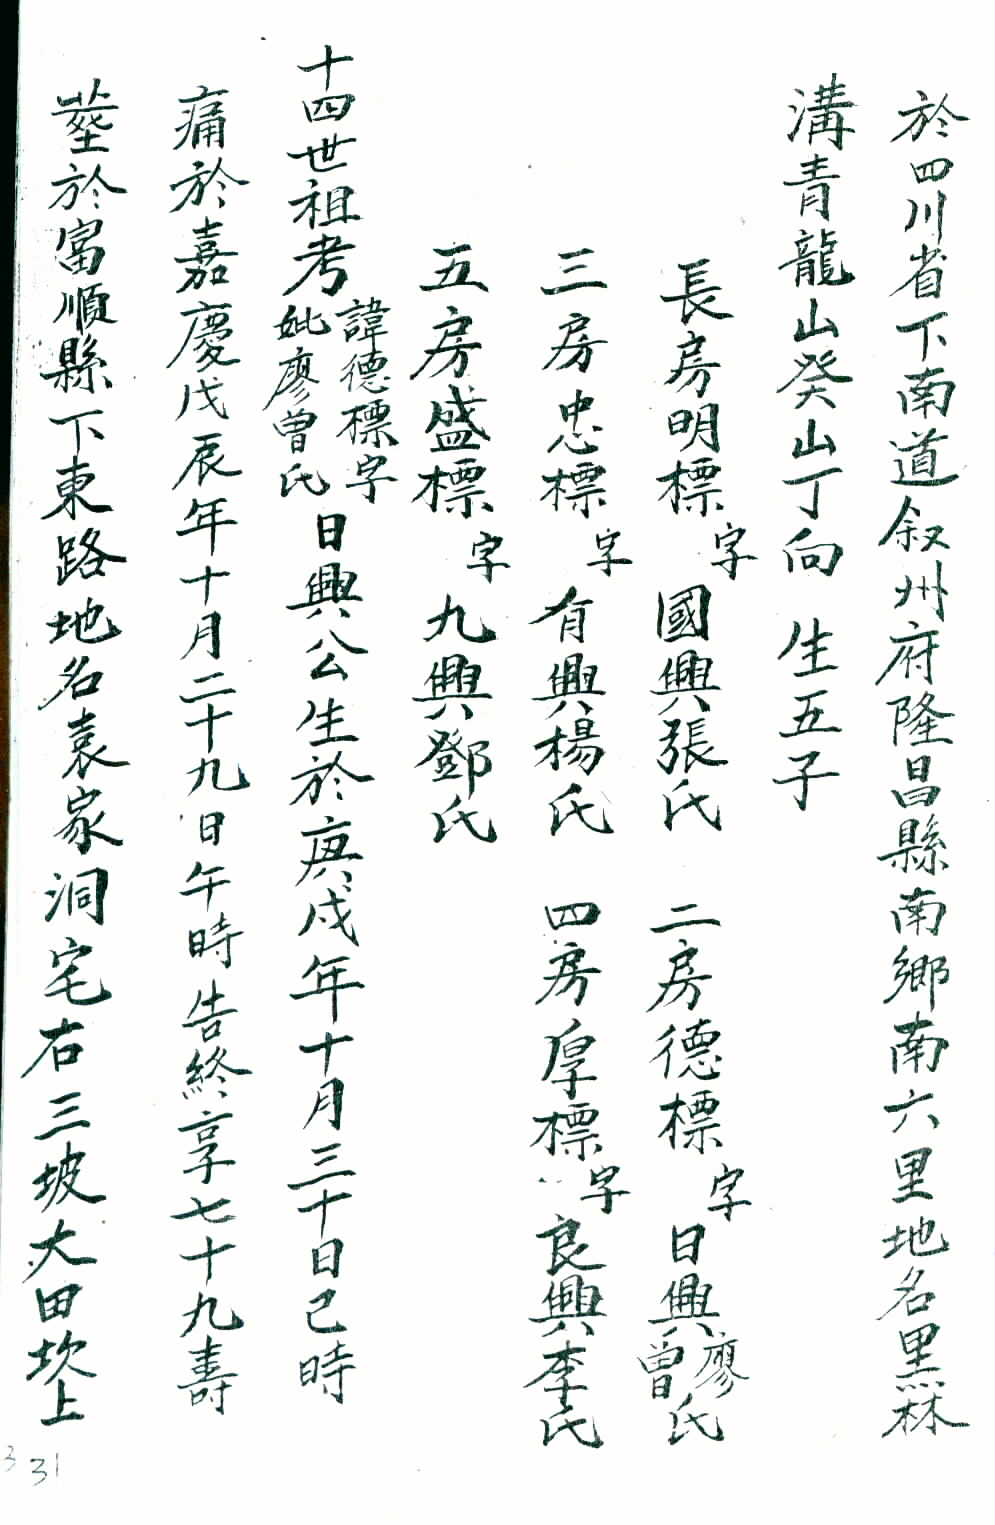 於四川省下南道叙州府隆昌縣南鄉南六里地名黑菻
溝青龍山癸山丁向 生五子
長房明標字國興張氏 二房德標字日興廖曾氏
三房忠標字有興楊氏 四房厚標字良興李氏
五房盛標字九興鄧氏
十四世祖考諱德標字妣廖曾氏日興公生於庚戌年十月三十日巳時
痛於嘉慶戊辰年十月二十九日午時告終享七十九壽
塟於富順縣下東路地名袁家洞宅右三坡大田坎上
3 31